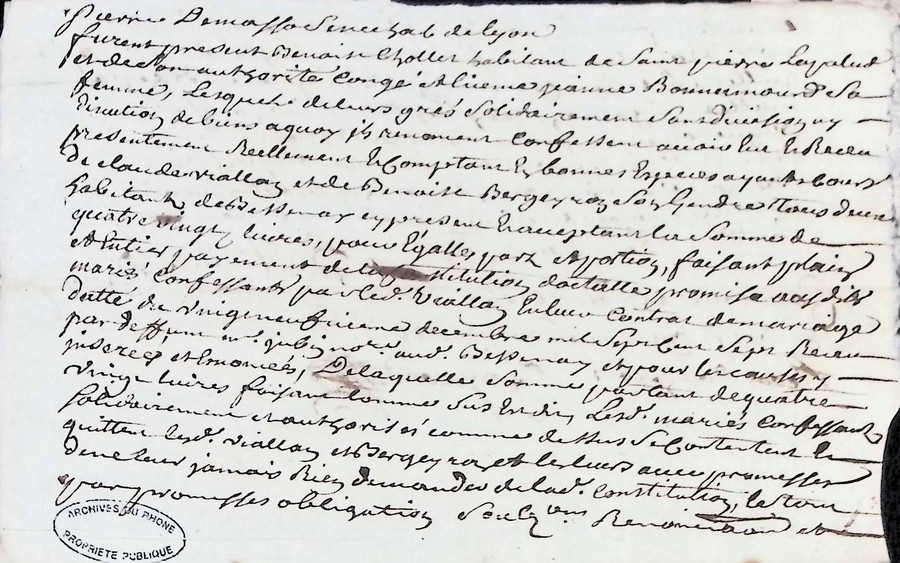 pierre Demasso Senechal de Lyon
furent present Benoist Chollet habitant de Saint pierre Lapalud
et de Son authorité Congé et licence jeanne Bonnemour Sa
femme, Lesquels de leurs grés Solidairement Sans division ny
discution de biens a quoy ils renoncent Confessent avoir Eu et Receu
presentement Reellement et Comptant En bonnes Especes ayant cours
de claude viallay et de Benoist Bergeyron Son Gendre tous deux
habitants de Bessenay cy present et acceptant La Somme de
quatre vingt livres, pour Egalles part et portion, faisant plain
et Entier payement de la Constitution dotalle promise aux dits
mariés Confessants par led. Viallay En leur Contrat de mariage
datté du vingt neufvieme decembre mil Sept Cent Sept Receu
par deffunt me. jubin nore. aud. Bessenay et pour les causes y
inserees et Enoncés, De laquelle Somme partant de quatre
vingt livres faisant Comme Sus Est dit, Lesd. mariés Confessants
Solidairement et authorisés comme dessus Se Contentent et
quittent lesd. viallay et Bergeyron et les leurs avec promesses
de ne leur jamais Rien demander de lad. Constitution, le tout
par promesses obligation Renonciation et
ARCHIVES DU RHONE
PROPRIETE PUBLIQUE